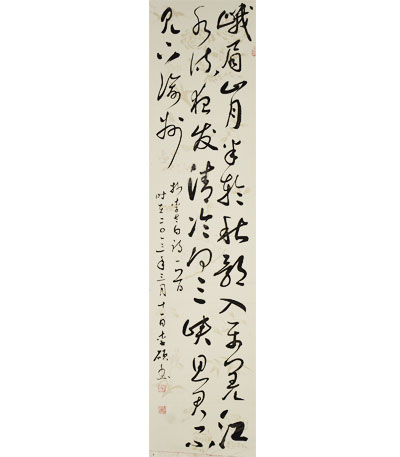 峨眉山月半轮秋影入平羌江
水流夜发清溪向三峡思君不
见下渝州
李太白诗一首
时在二〇一三年三月十一日李硕书